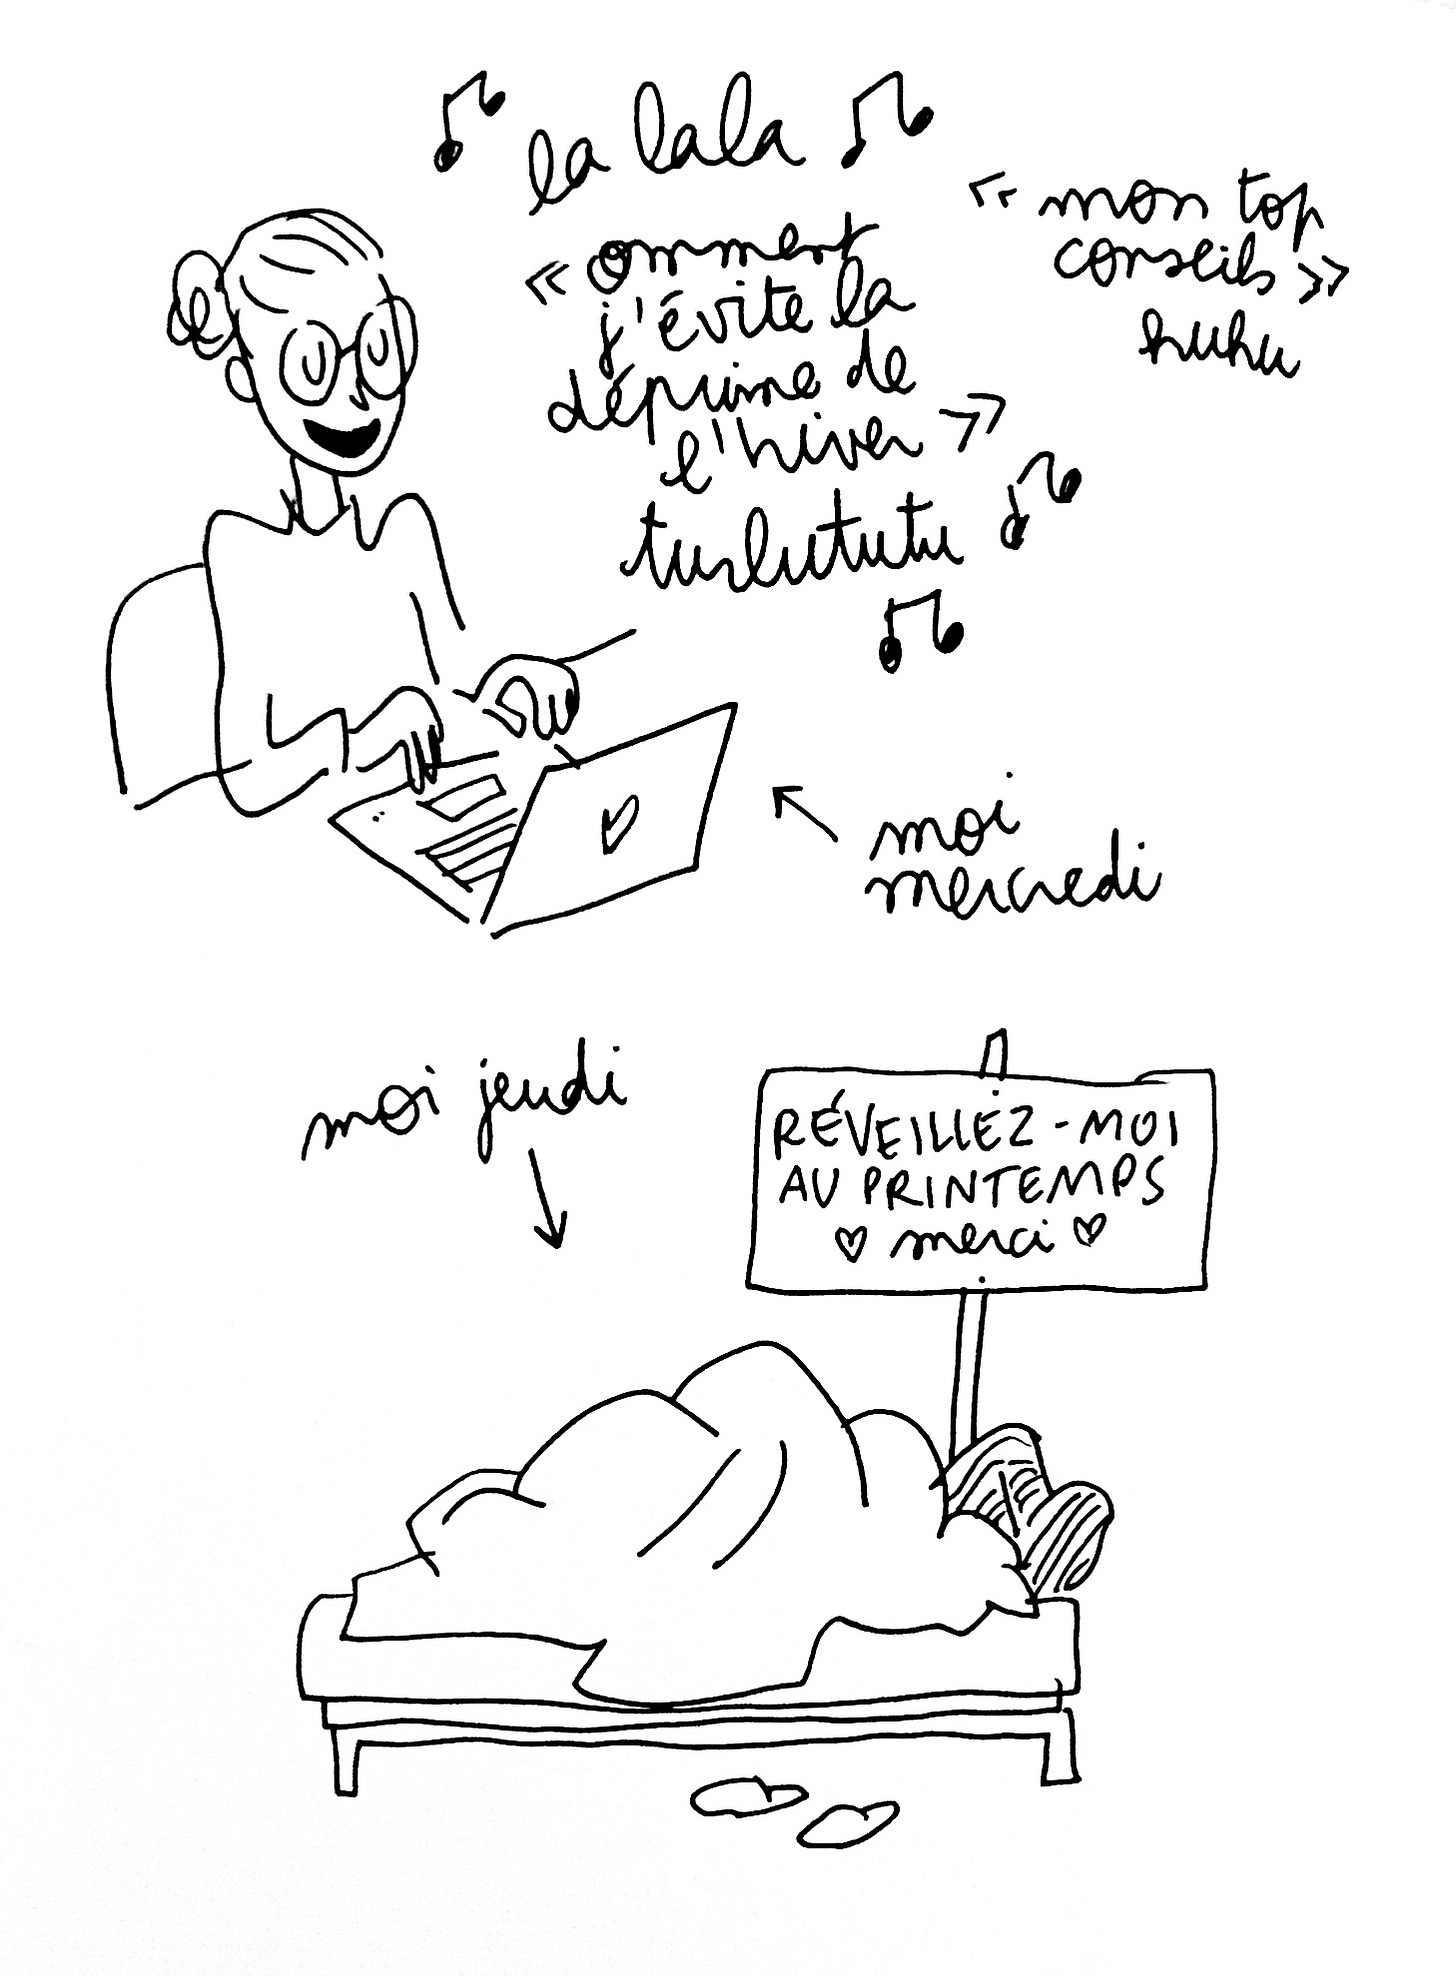 la lala
« omment
j'évite la
déprime de
l'hiver »
turlututu
« mon top
conseils »
huhu
moi
mercredi
moi jeudi
RÉVEILLEZ-MOI
AU PRINTEMPS
♡ merci ♡